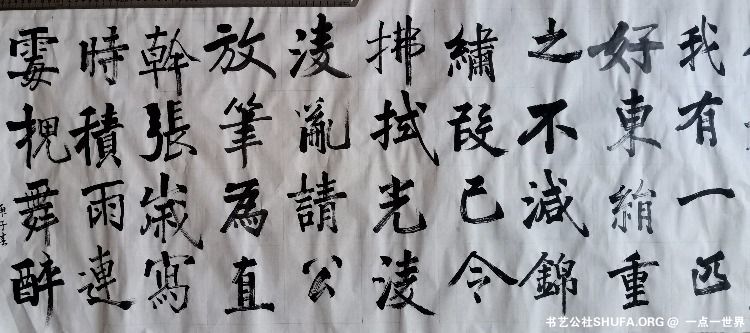 我有一匹
好東絹重
之不減錦
繡段已令
拂拭光淩
淩亂請公
放筆為直
幹張歲寫
時積雨連
霎槐舞醉
书艺公社SHUFA.ORG @ 一点一世界